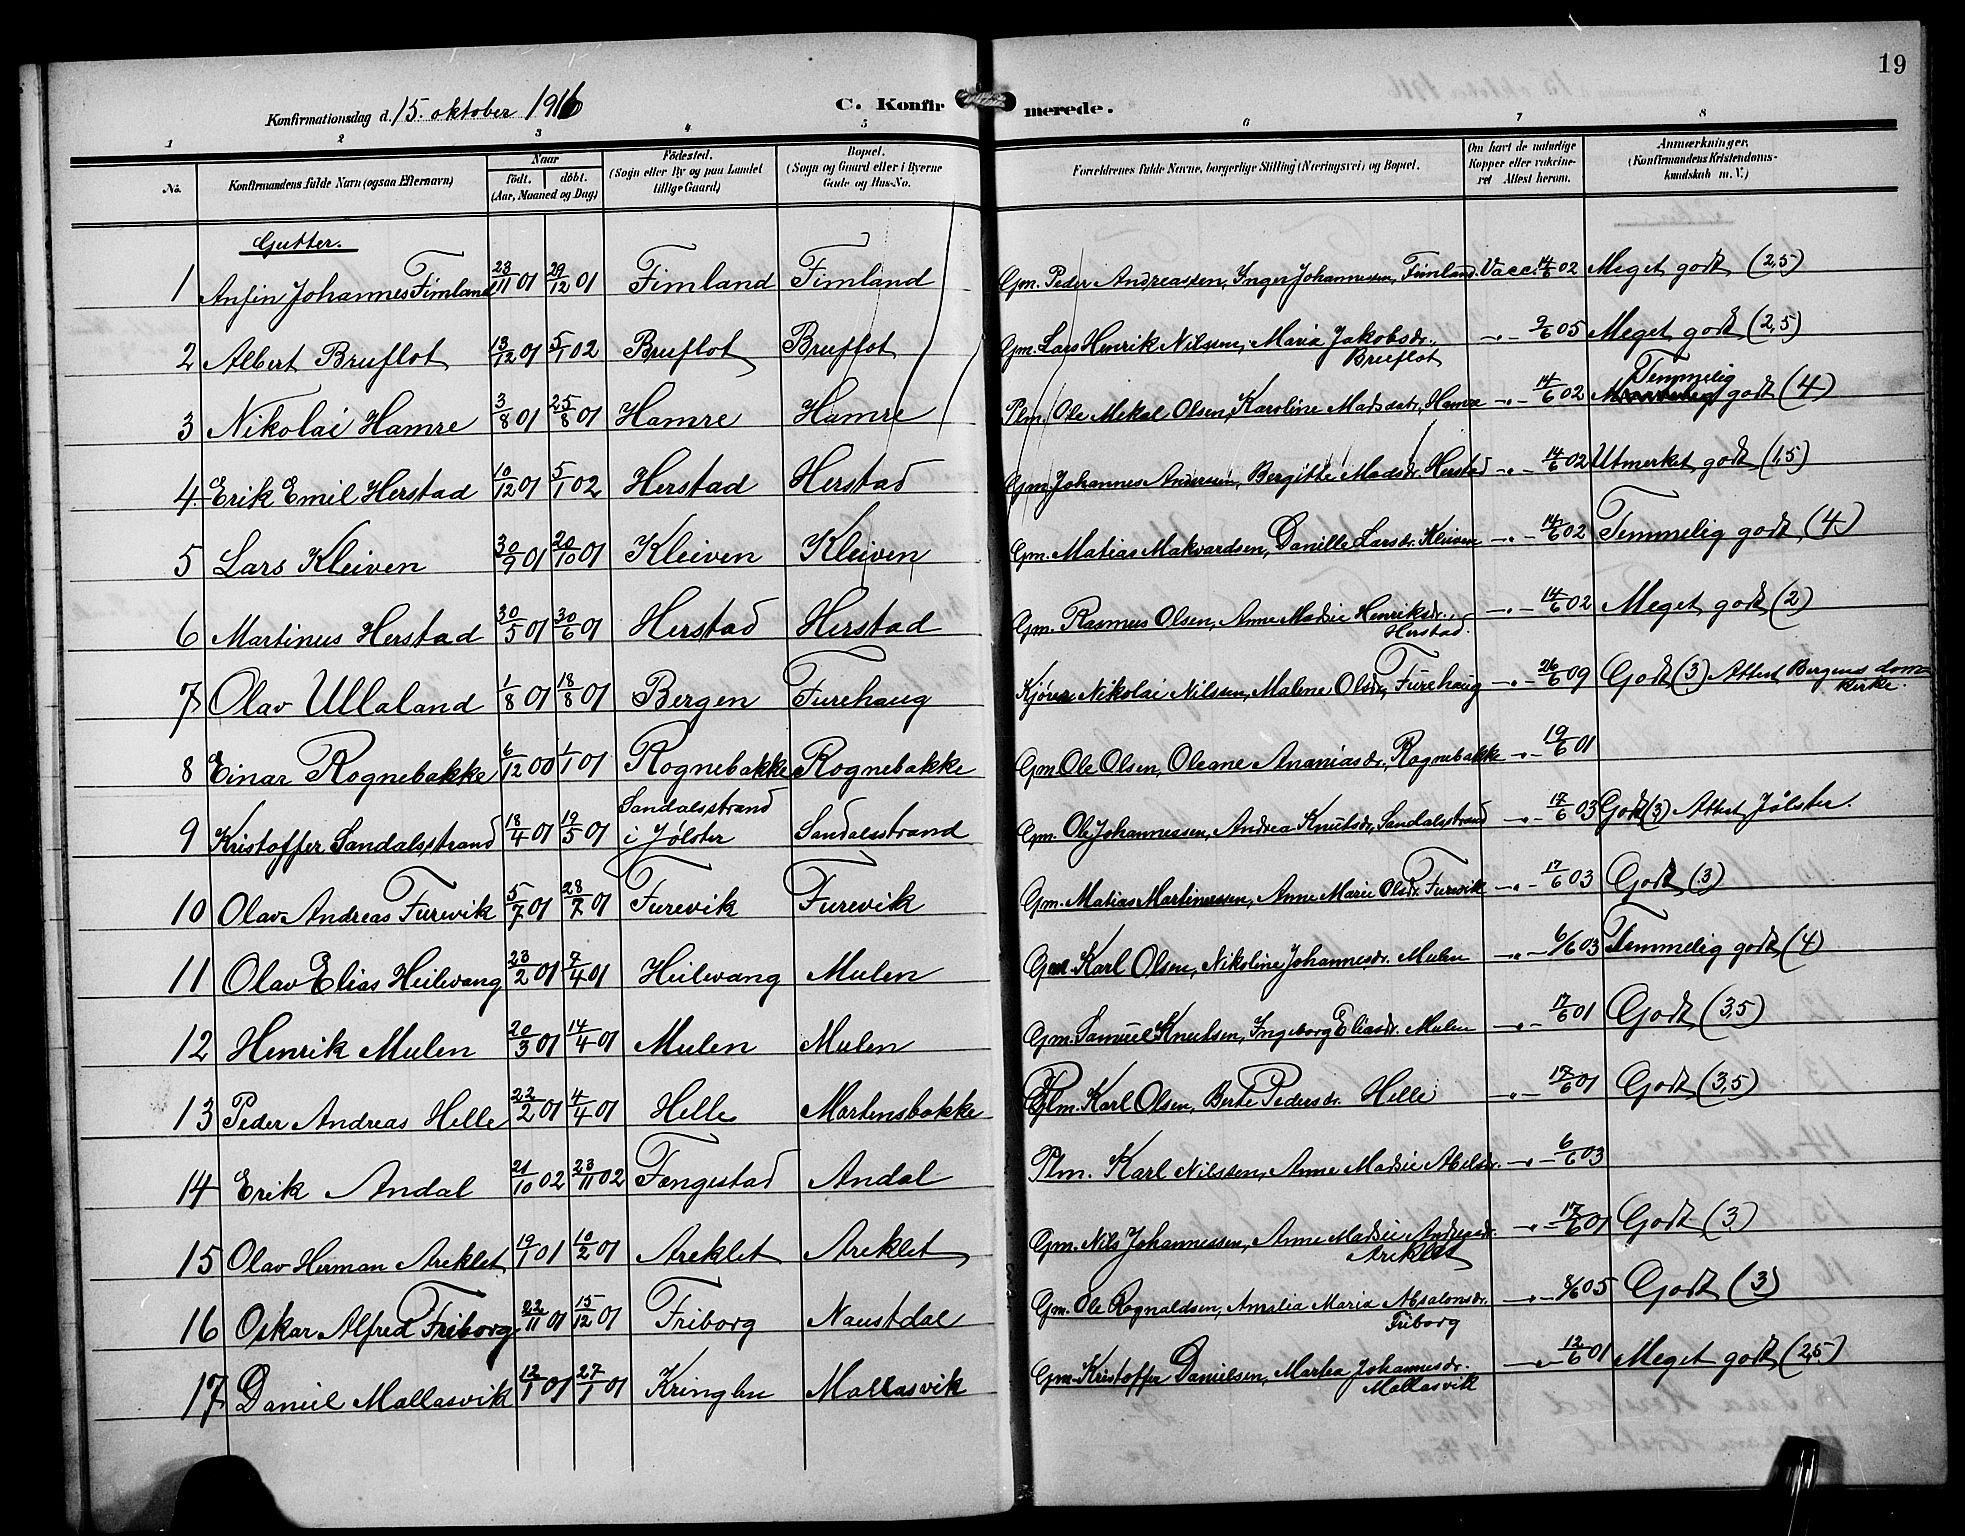 19
Konfirmationsdag d. 15. oktober 1916
C. Konfirmerede.
1 2 3 4 5 6 7 8
No. Konfirmandens fulde Navn (ogsaa Efternavn) Naar født. døbt. (Aar, Maaned og Dag) Fødested. (Sogn eller By og paa Landet tillige Gaard) Bopæl. (Sogn og Gaard eller i Byerne Gade og Hus-No. Forældrenes fulde Navne, borgerlige Stilling (Næringsvei) og Bopæl. Om havt de naturlige Kopper eller vakcineret Attest herom. Anmærkninger. (Konfirmandens Kristendomskundskab m. V.)
Gutter.
1 Anfin Johannes Fimland 23/11 01 29/12 01 Fimland Fimland Gm. Peder Andreassen, Inger Johannessen, Fimland. Vacc. 14/6 02 Meget godt (2,5)
2 Albert Bruflot 13/12 01 5/1 02 Bruflot Bruflot Gm. Lars Henrik Nilssen, Maria Jakobsdr., Bruflot -"- 9/6 05 Meget godt (2,5)
3 Nikolai Hamre 3/8 01 25/8 01 Hamre Hamre Plm. Ole Mikal Olsen, Karoline Madsdatr, Hamre -"- 14/6 02 Temmelig godt (4)
4 Erik Emil Herstad 10/12 01 5/1 02 Herstad Herstad Gm. Johannes Andersen, Bergitte Madsdr. Herstad -"- 14/6 02 Utmerket godt (1,5)
5 Lars Kleiven 30/9 01 20/10 01 Kleiven Kleiven Gm. Matias Makvardsen, Danille Larsdr. Kleiven -"- 14/6 02 Temmelig godt, (4)
6 Martinus Herstad 30/5 01 30/6 01 Herstad Herstad Gm. Rasmus Olsen, Anne Madsie Henriksdr., Herstad. -"- 14/6 02 Meget godt (2)
7 Olav Ullaland 1/8 01 18/8 01 Bergen Furehaug Nikolai Nilsen, Malene Olsdr, Furehaug -"- 26/6 09 Godt (3) Attest Bergens domkirke.
8 Einar Rognebakke 6/12 00 1/1 01 Rognebakke Rognebakke Gm. Ole Olsen, Oleane Ananiasdr, Rognebakke -"- 19/6 01
9 Kristoffer Sandalsstrand 18/4 01 19/5 01 Sandalsstrand i Jølster Sandalsstrand Gm. Ole Johannessen, Andrea Knutsdr, Sandalsstrand -"- 17/6 03 Godt (3) Attest Jølster.
10 Olav Andreas Furevik 5/7 01 28/7 01 Furevik Furevik Gm. Matias Martinussen, Anne Marie Olsdr. Furevik -"- 17/6 03 Godt (3)
11 Olav Elias Heilevang 23/2 01 7/4 01 Heilevang Mulen Gm. Karl Olsen, Nikoline Johannesdr. Mulen -"- 6/6 03 Temmelig godt (4)
12 Henrik Mulen 20/3 01 14/4 01 Mulen Mulen Gm. Samuel Knutsen, Ingeborg Eliasdr. Mulen -"- 17/6 01 Godt (3,5)
13 Peder Andreas Helle 22/2 01 4/4 01 Helle Martensbakke Plm. Karl Olsen, Berte Pedersdr. Helle -"- 17/6 01 Godt (3,5)
14 Erik Andal 21/10 02 23/11 02 Fengestad Andal Plm. Karl Nilssen, Anne Madsie Abelsdr. -"- 6/6 03
15 Olav Herman Areklet 19/1 01 10/2 01 Areklet Areklet Gm. Nils Johannessen, Anne Madsie Andreasdr. Areklet -"- 17/6 01 Godt (3)
16 Oskar Alfred Friborg 22/11 01 15/12 01 Friborg Naustdal Gm. Ole Rognaldsen, Amalia Maria Absalonsdr. Friborg -"- 8/6 05 Godt (3)
17 Daniel Mallasvik 12/1 01 27/1 01 Kringlen Mallasvik Gm. Kristoffer Danielsen, Martea Johannesdr. Mallasvik -"- 12/6 01 Meget godt (2,5)